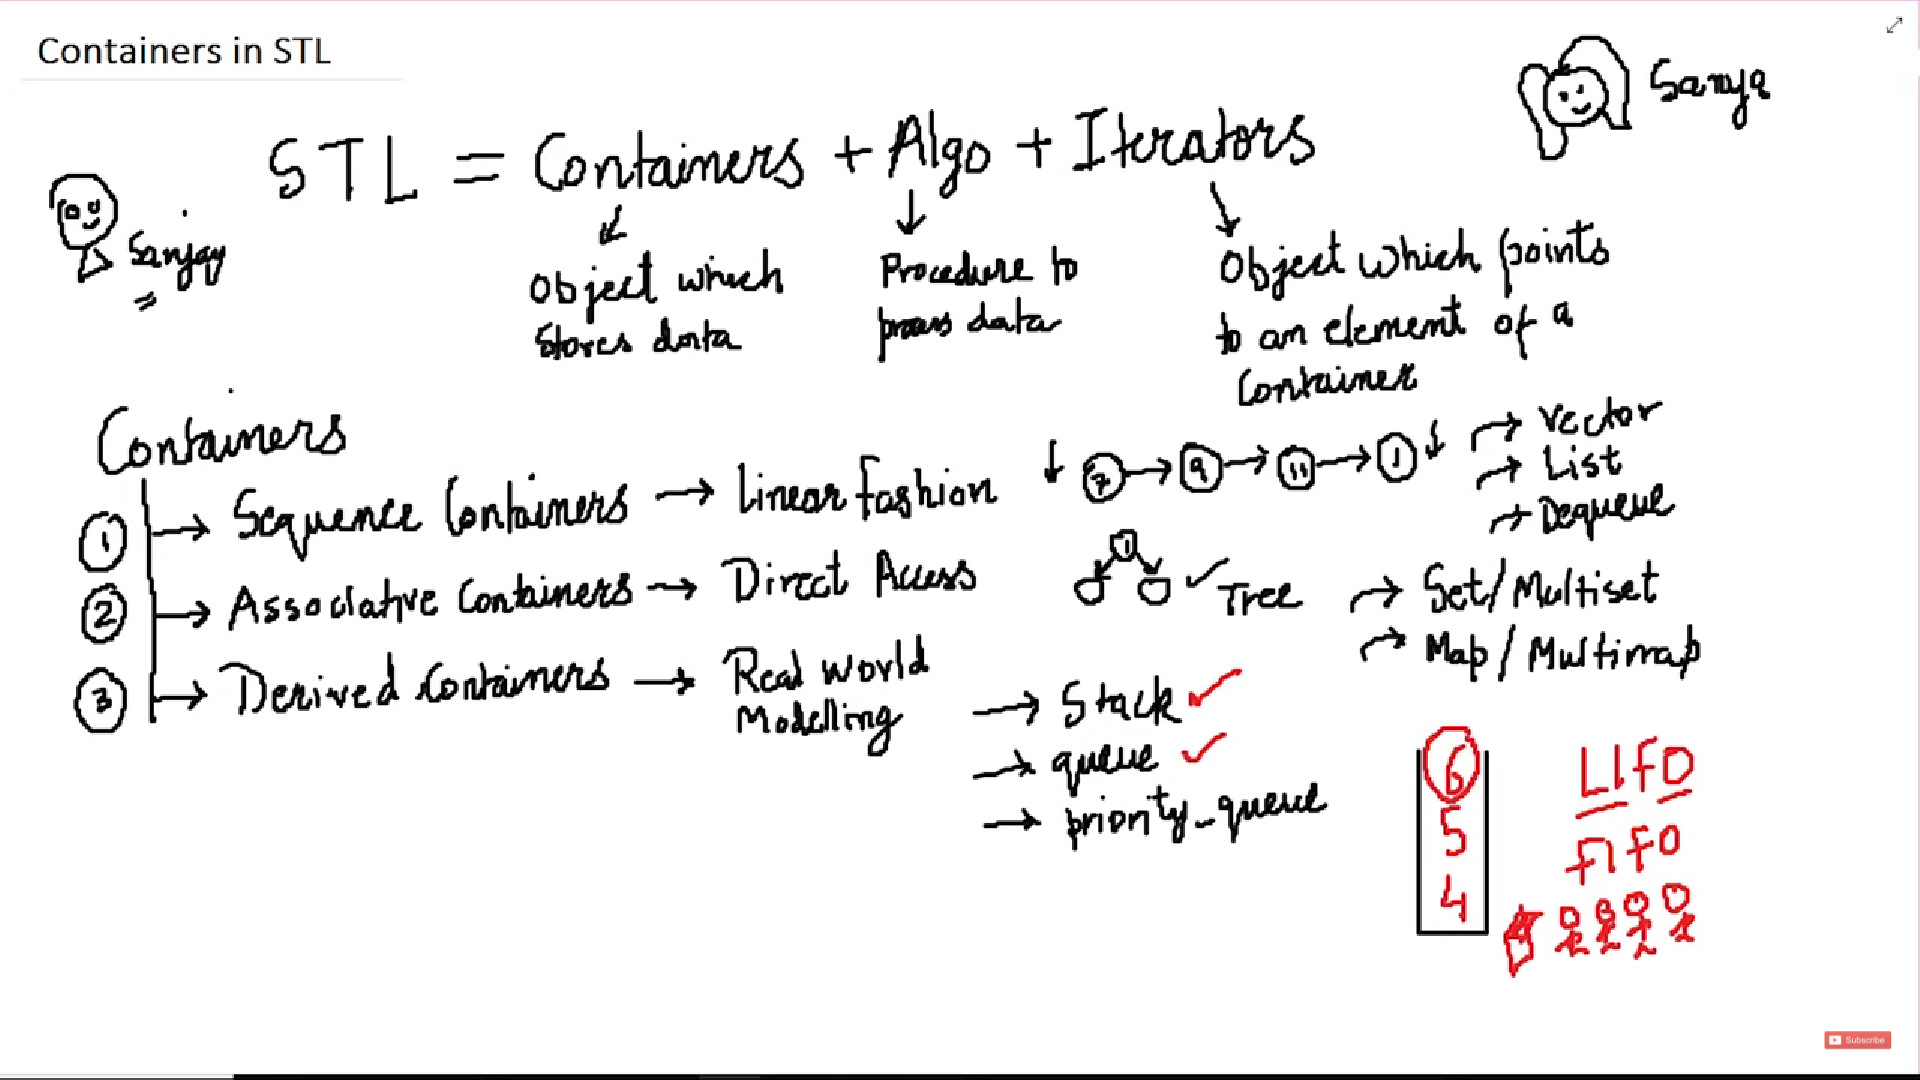 Containers in STL
Sanya
STL = Containers + Algo + Iterators
Sanjay
Object which
stores data
Procedure to
process data
Object which points
to an element of a
Container
Containers
1 → Sequence Containers → Linear fashion
7 → 9 → 11 → 1
→ Vector
→ List
→ Dequeue
2 → Associative Containers → Direct Access
1
Tree
→ Set/Multiset
→ Map/Multimap
3 → Derived Containers → Real World
Modelling
→ Stack
→ queue
→ priority_queue
6
5
4
LIFO
FIFO
Subscribe